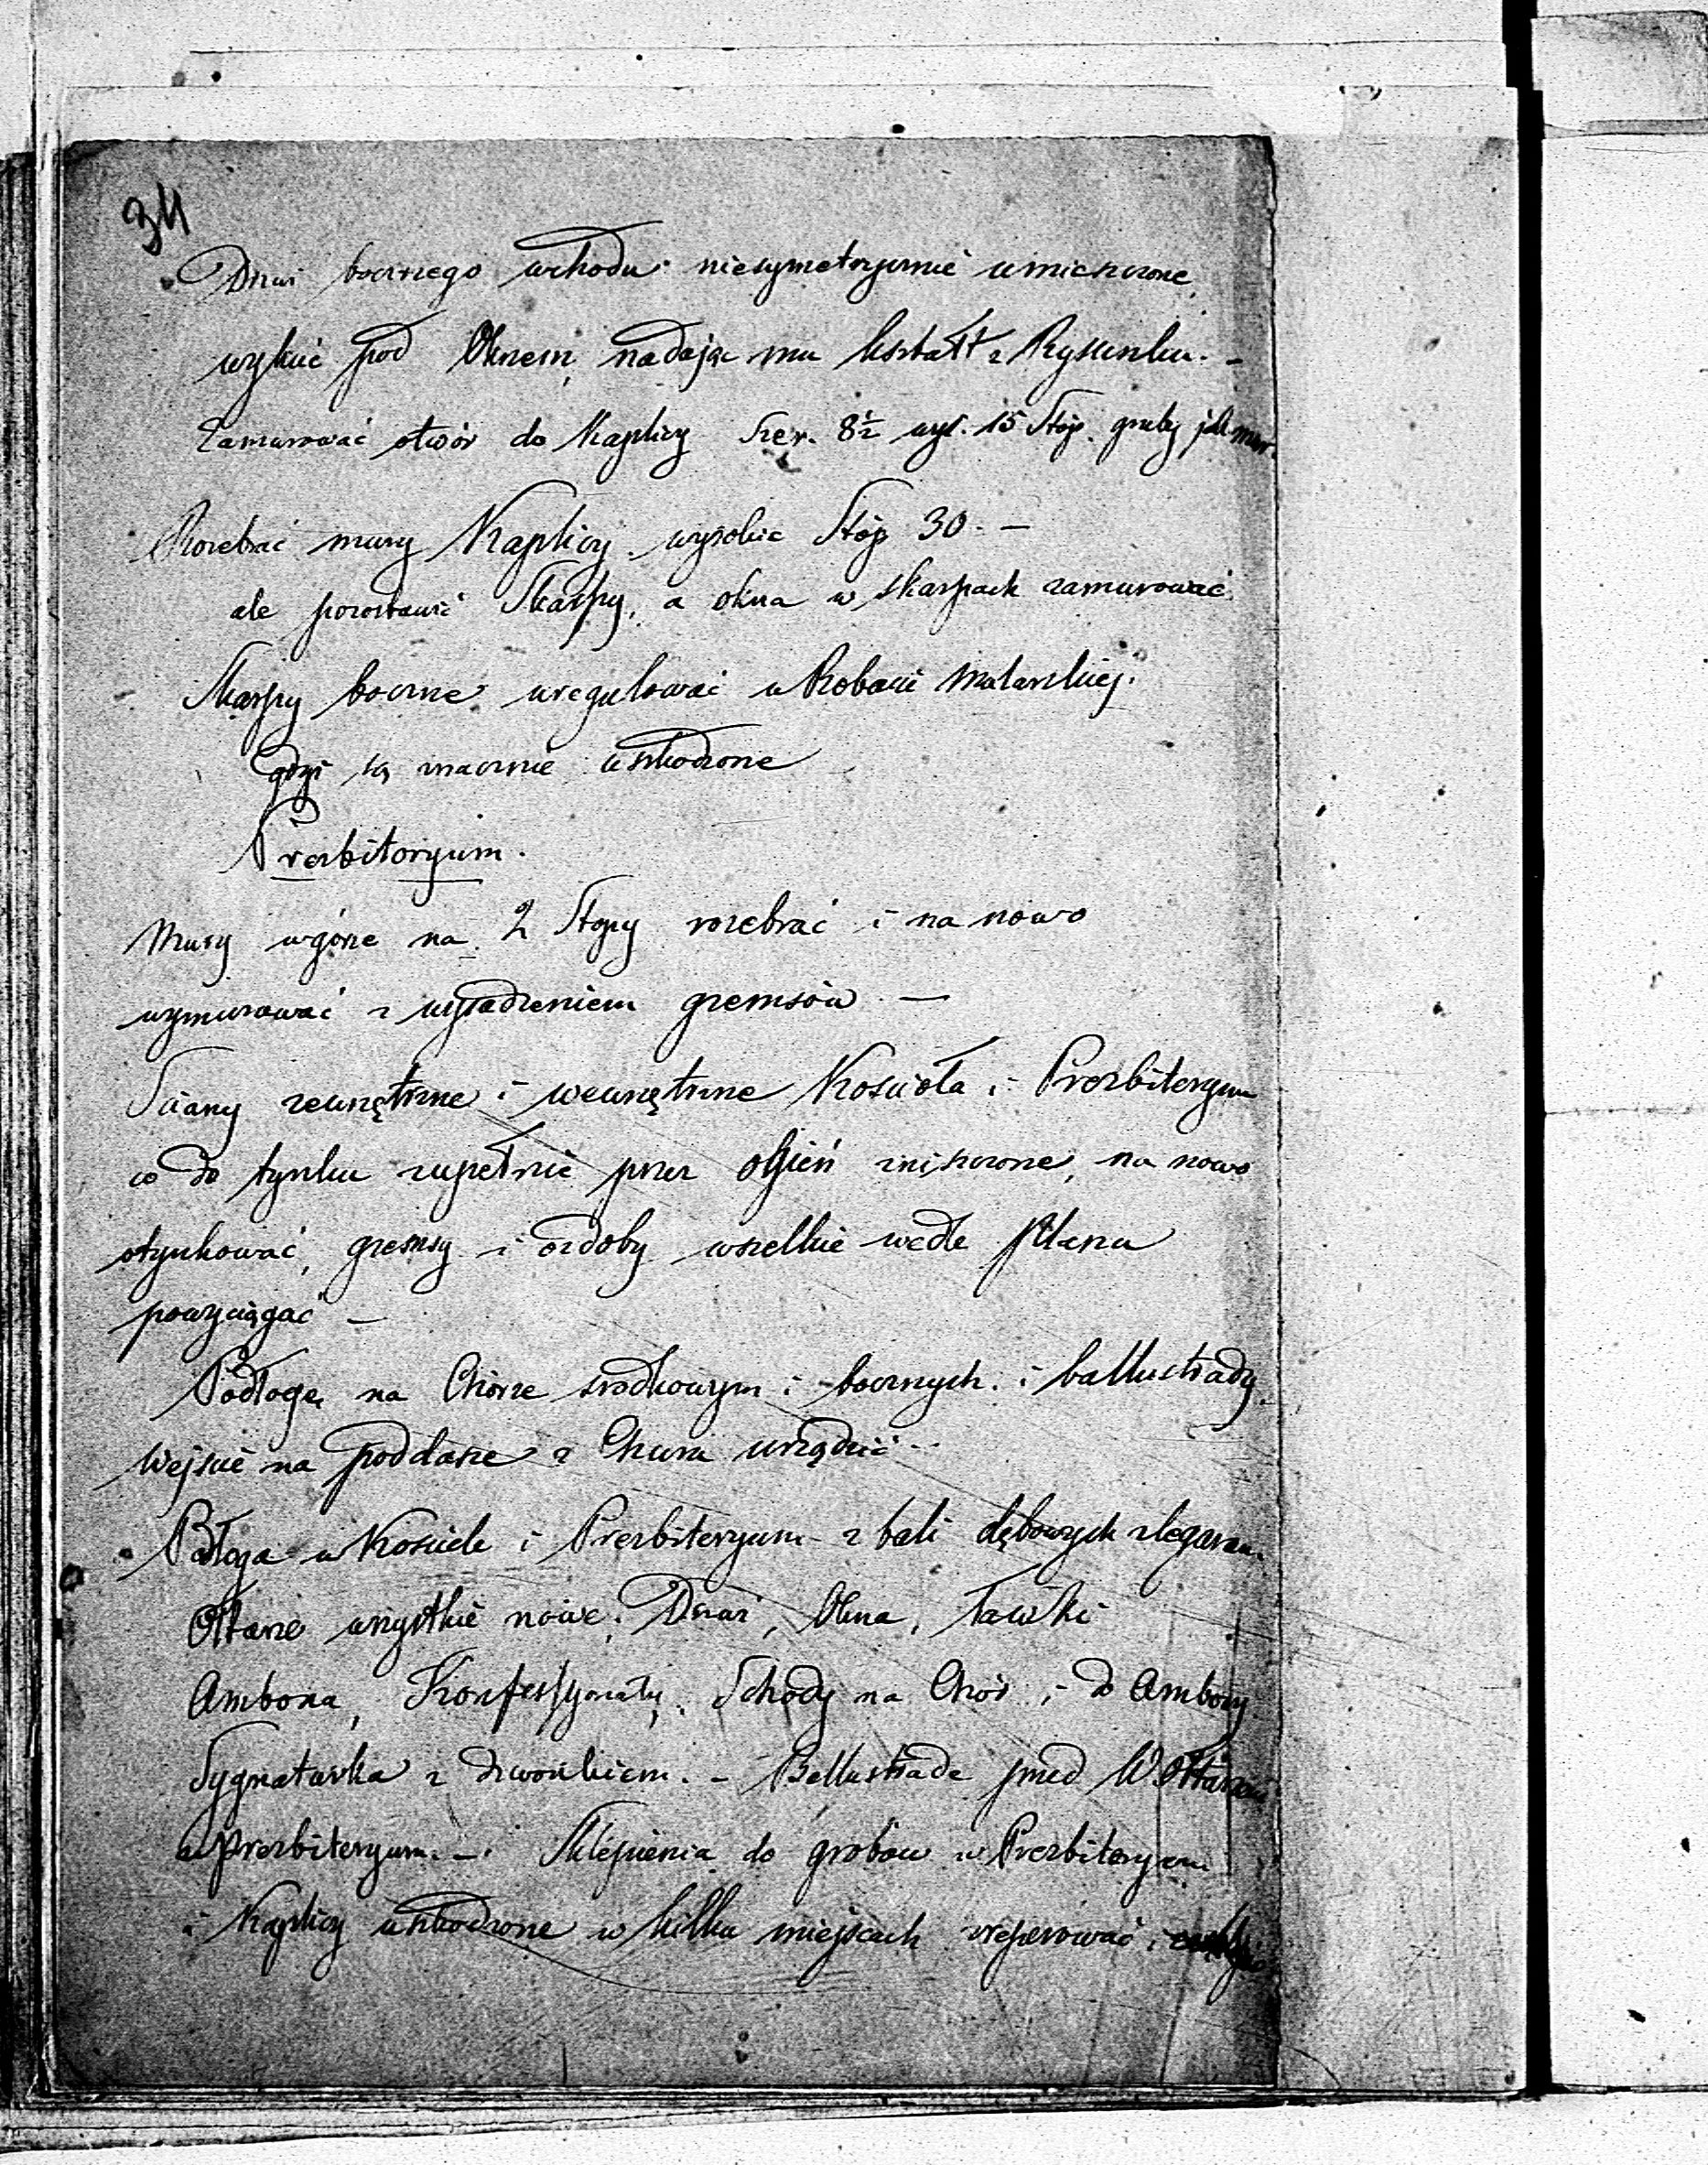 34
Drzwi bocznego wchodu niesymetrycznie umieszczone,
wykuć pod Oknem, nadając mu kształt z Rysunku. –
Zamurować otwór do Kaplicy Szer. 8½ wys. 15 Stóp. gruby jak mur.
Rozebrać mury Kaplicy wysokie Stóp 30. –
ale pozostawić Skarpy, a okna w skarpach zamurować.
Skarpy boczne uregulować w Robocie Malarskiej.
gdyż są znacznie uszkodzone
Prezbitoryum.
Mury wgórze na 2 Stopy rozebrać i na nowo
wymurować z wysadzeniem gzemsów –
Sciany zewnętrzne i wewnętrzne Kościoła i Prezbiteryum
co do tynku zupełnie przez ogień zniszczone, na nowo
otynkować, gzemsy i ozdoby wszelkie wedle planu
powyciągać –
Podłogę na Chórze środkowym i bocznych i ballustrady.
Wejście na poddasze z Churu urządzić –
Podłoga w Kościele i Prezbiteryum z bali dębowych z legarami
Ołtarze wszystkie nowe, Drzwi, Okna, Ławki
Ambona, Konfessyonały, Schody na Chór i do Ambony
Sygnaturka z dzwonkiem. – Ballustrada przed W. Ołtarzem
w Prezbiteryum. – Sklepienia do grobów w Prezbiteryum
i Kaplicy uszkodzone w kilku miejscach zreperować i